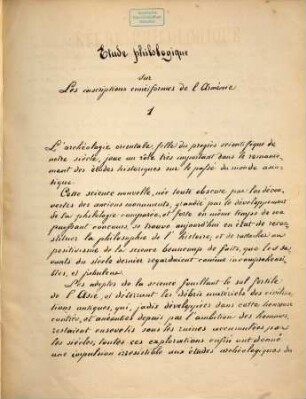 Etude philologique
sur
Les inscriptions cunéiformes de l'Arménie
1
L'archéologie orientale, fille du progrès scientifique de
notre siècle, joue un rôle très important dans le remanie-
ment des études historiques sur le passé du monde an-
tique.
Cette science nouvelle, née toute obscure par les décou-
vertes des anciens monuments, grandie par le développement
de la philologie comparée, et forte en même temps de son
puissant concours, se trouve aujourd'hui en état de recon-
stituer la philosophie de l'Histoire, et de rattacher au
positivisme de la science beaucoup de faits, que les sa-
vants du siècle dernier regardaient comme incompréhensi-
bles, et fabuleux.
Les adeptes de la science fouillant le sol fertile
de l'Asie, et déterrant les débris matériels des civilisa-
tions antiques, qui, jadis développées dans cette heureuse
contrée, et anéanties depuis par l'ambition des hommes,
restaient ensevelis sous les ruines accumulées par
les siècles, toutes ces explorations enfin ont donné
une impulsion irrésistible aux études archéologiques de